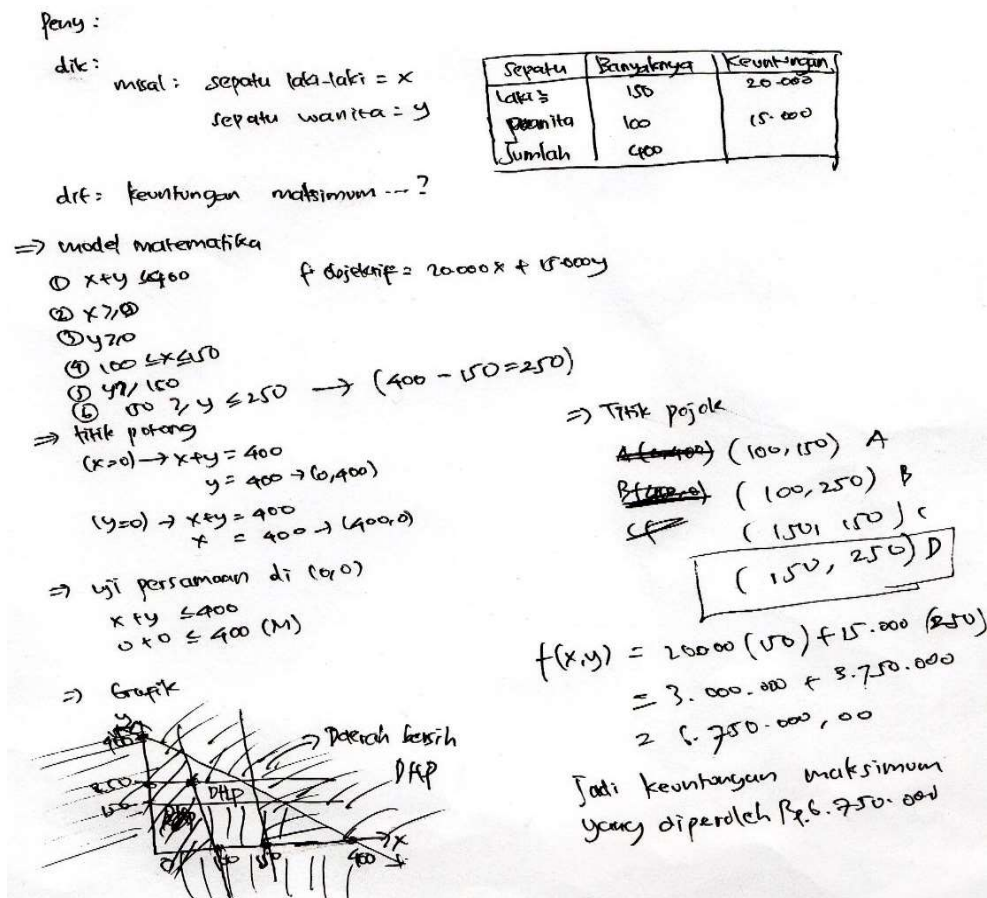 Peny :
dik :
misal : sepatu laki-laki = x
sepatu wanita = y
Sepatu Banyaknya Keuntungan
Laki² 150 20.000
wanita 100 15.000
Jumlah 400
dit : keuntungan maksimum --- ?
⇒ model matematika
① x+y ≤ 400 f objektif = 20.000x + 15.000y
② x ≥ 0
③ y ≥ 0
④ 100 ≤ x ≤ 150
⑤ y ≥ 150
⑥ 150 ≥ y ≤ 250 → (400 - 150 = 250)
⇒ titik potong
(x=0) → x+y = 400
y = 400 → (0,400)
(y=0) → x+y = 400
x = 400 → (400,0)
⇒ uji persamaan di (0,0)
x + y ≤ 400
0 + 0 ≤ 400 (M)
⇒ Grafik
y
400
250
DHP
0
150 400 x
→ Daerah bersih
DHP
⇒ Titik pojok
A (0,400) (100, 150) A
B (400,0) (100, 250) B
(150, 150) C
(150, 250) D
f(x,y) = 20000 (150) + 15.000 (250)
= 3.000.000 + 3.750.000
= 6.750.000,00
Jadi keuntungan maksimum
yang diperoleh Rp.6.750.000